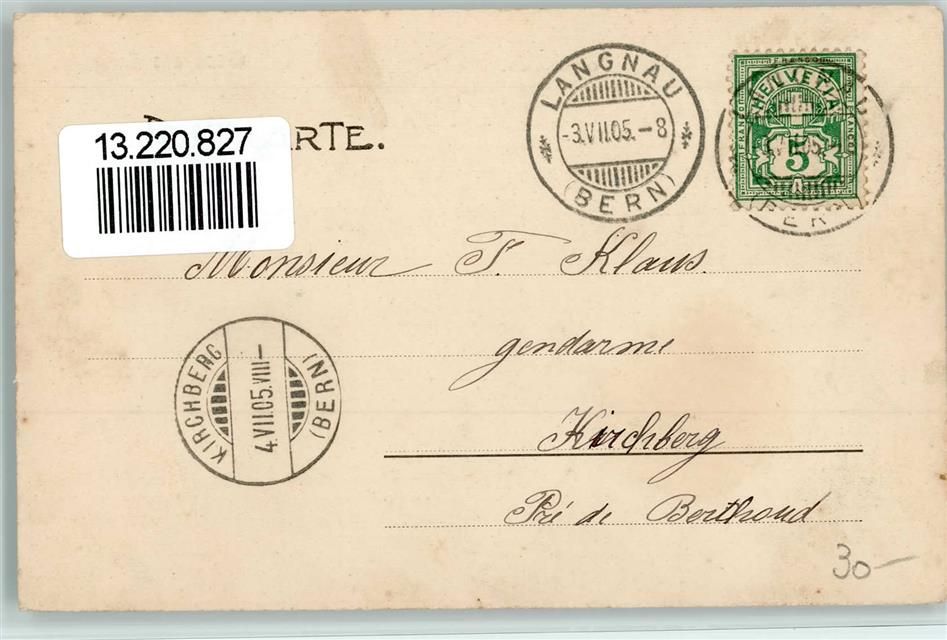 13.220.827
ARTE.
LANGNAU
-3.VII.05.-8
(BERN)
FRANCO
HELVETIA
FRANCO
FRANCO
5
Monsieur F. Klaus.
gendarme
Kirchberg
Pré de Berthoud
KIRCHBERG
4.VII.05.VIII-
(BERN)
30-